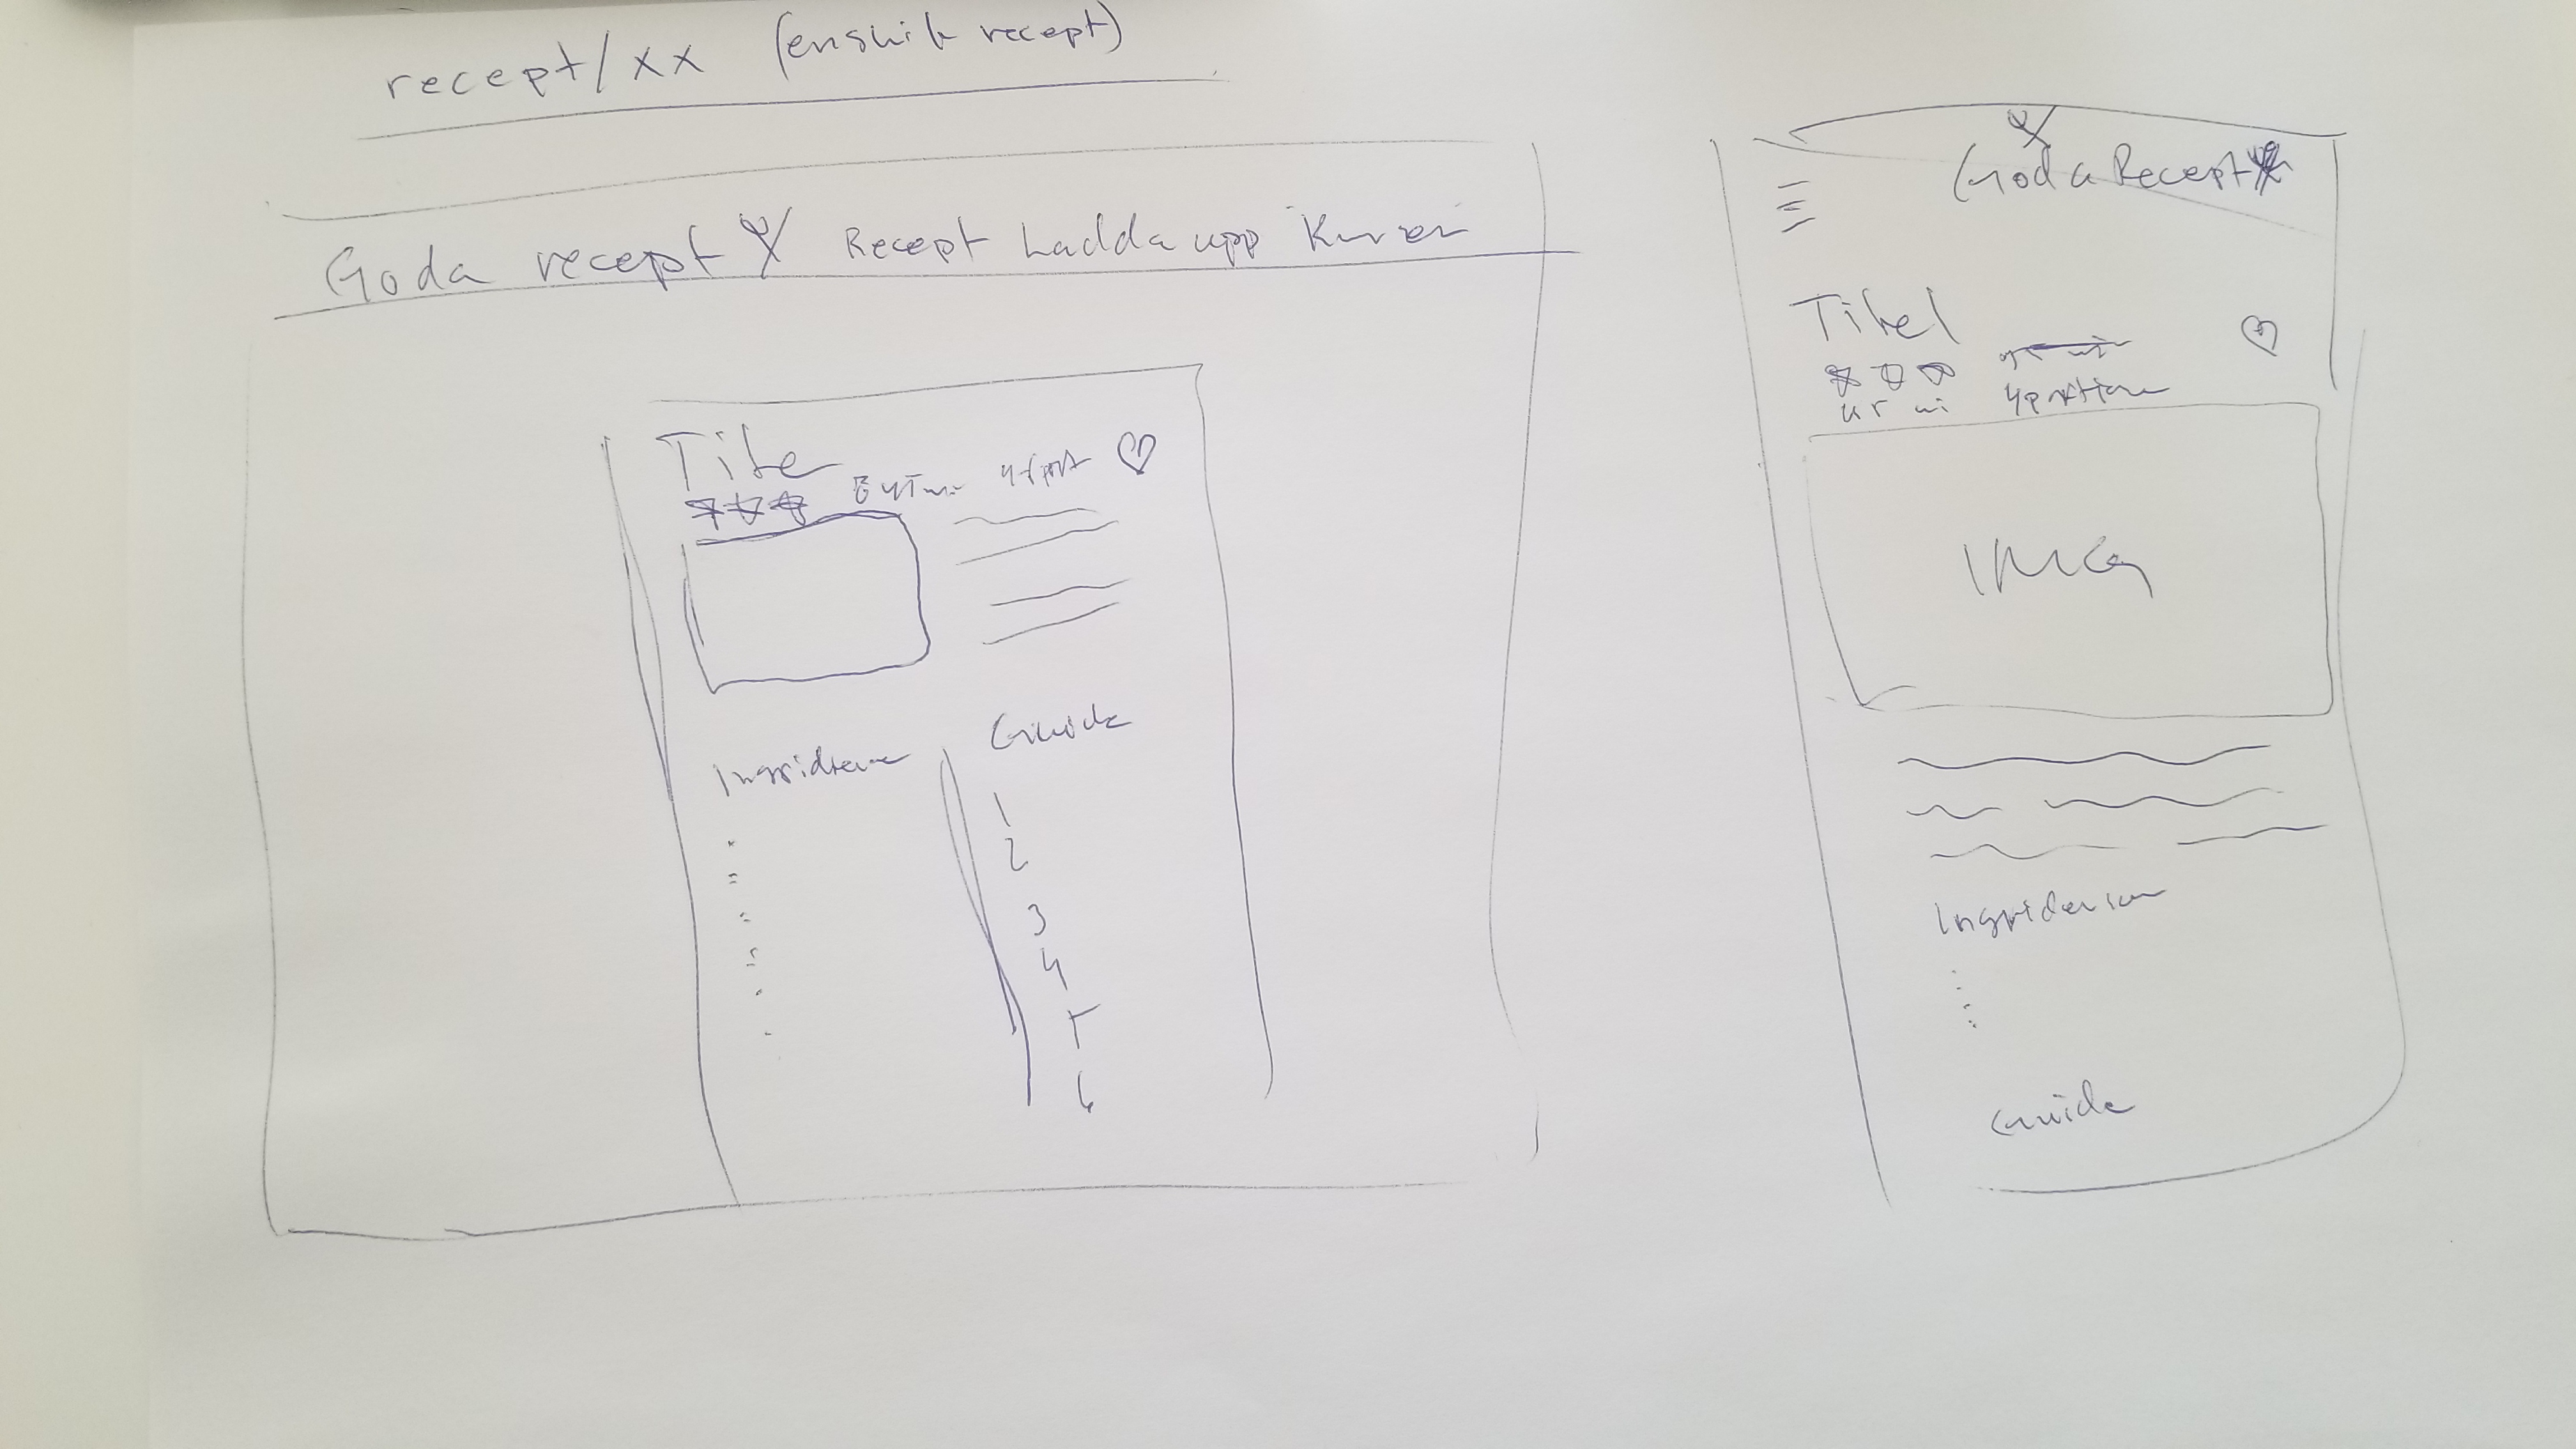 recept/xx (enskilt recept)
Goda recept Recept Ladda upp
Titel
4 port
Ingredienser
Guide
1
2
3
4
5
6
Goda Recept
Titel
4 portioner
IMG
Ingredienser
Guide